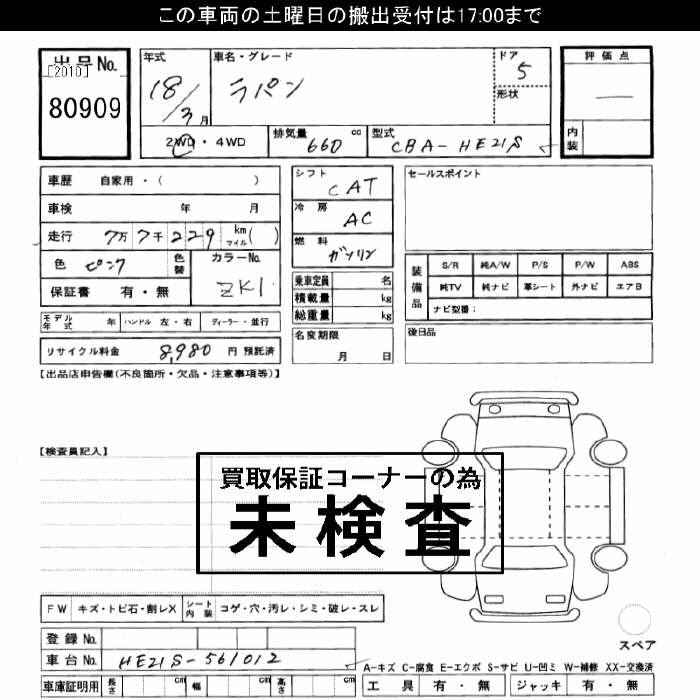 この車両の土曜日の搬出受付は17:00まで
出品No.
[2010]
80909
年式
18/3月
車名・グレード
ラパン
ドア
5
形状
評価点
—
内装
2WD・4WD
排気量 660 cc
型式 CBA-HE21S
車歴 自家用・( )
車検 年 月
走行 7万7千229 km マイル( )
色 ピンク
色替
カラーNo.
ZK1
保証書 有・無
シフト
CAT
冷房
AC
燃料
ガソリン
乗車定員 名
積載量 kg
総重量 kg
名変期限
月 日
セールスポイント
装備品
S/R 純A/W P/S P/W ABS
純TV 純ナビ 革シート 外ナビ エアB
ナビ型番:
後日品
モデル年式 年 ハンドル 左・右 ディーラー・並行
リサイクル料金 8,980 円 預託済
【出品店申告欄(不良箇所・欠品・注意事項等)】
【検査員記入】
買取保証コーナーの為
未検査
FW キズ・トビ石・割レX シート内装 コゲ・穴・汚レ・シミ・破レ・スレ
登録No.
車台No. HE21S-561012
車庫証明用 長さ cm 幅 cm 高さ cm
スペア
A-キズ C-腐食 E-エクボ S-サビ U-凹ミ W-補修 XX-交換済
工具 有・無 ジャッキ 有・無